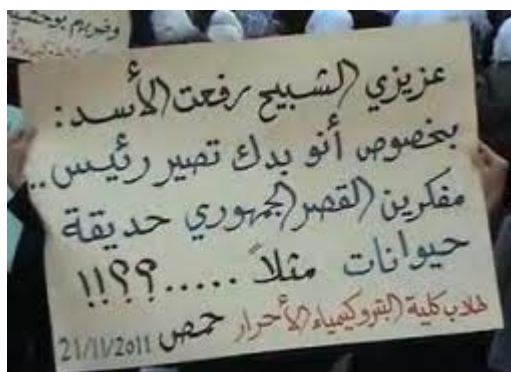 وضريم بوحشية
عزيزي الشبيح رفعت الأسد:
بخصوص أنو بدك تصير رئيس..
مفكرين القصر الجمهوري حديقة
حيوانات مثلاً .....؟؟!!
طلاب كلية البتروكيمياء الأحرار حمص 21/11/2011